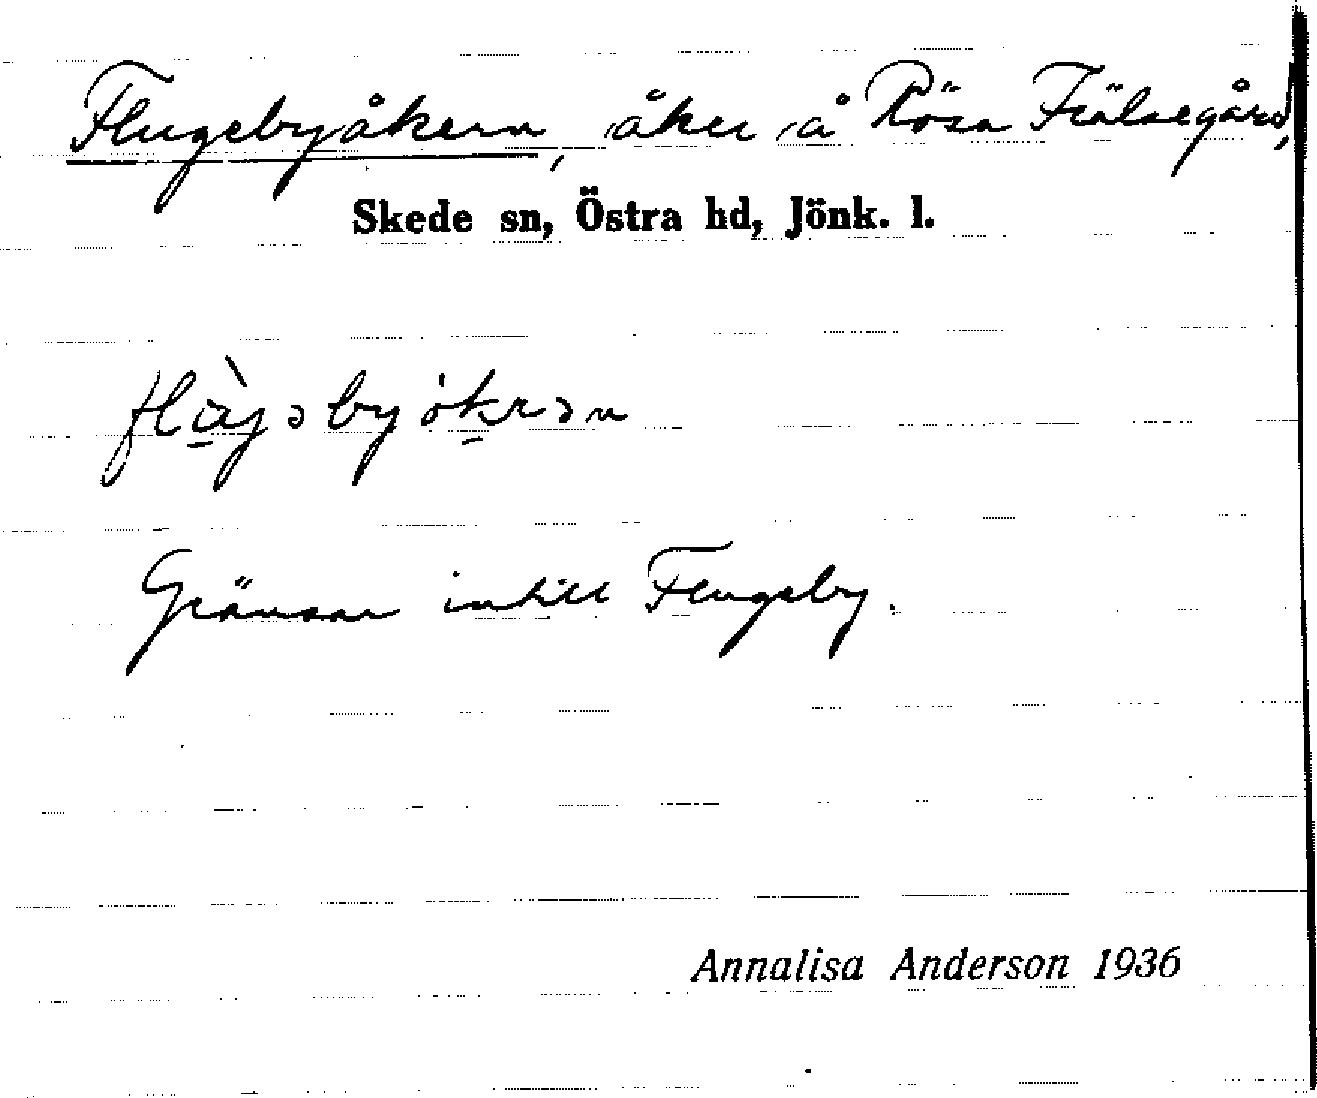 Flugebyåkern, åker å Rösa Frälsegård,
Skede sn, Östra hd, Jönk. l.
Gränsar intill Flugeby.
Annalisa Anderson 1936